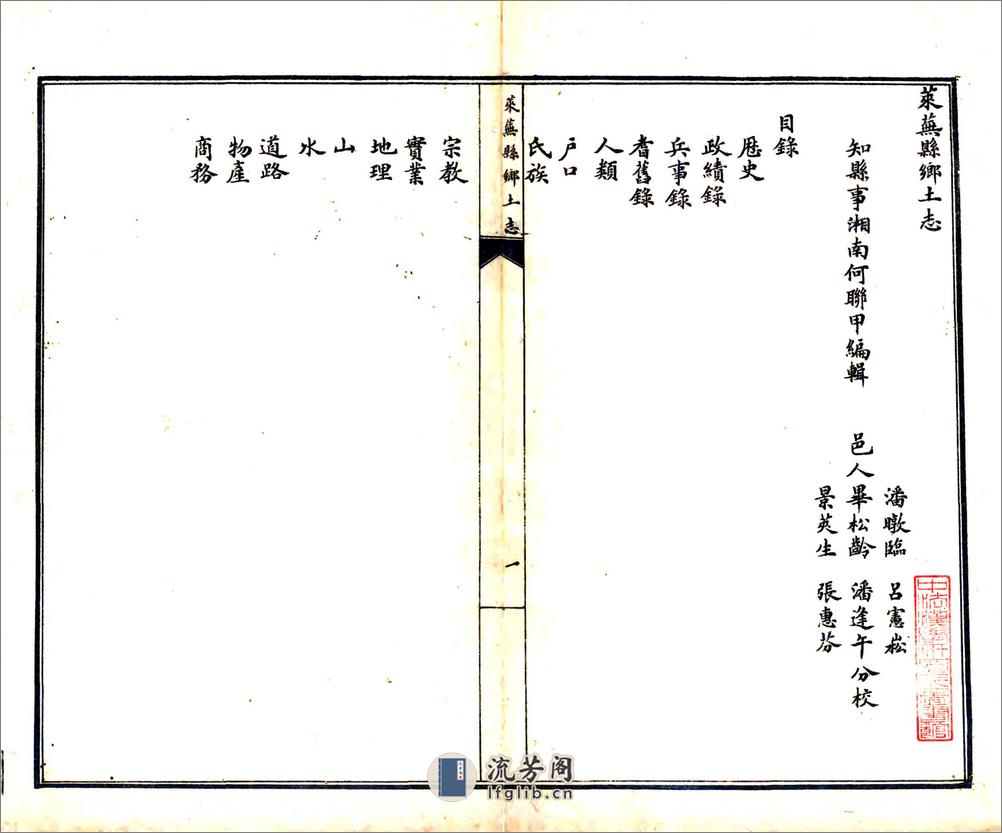 萊蕪縣鄉土志
知縣事湘南何聯甲編輯
邑人
潘暾臨
畢松齡
景莢生
呂憲崧
潘逢午
張惠芬
分校
目錄
歷史
政績錄
兵事錄
耆舊錄
人類
戶口
氏族
萊蕪縣鄉土志
一
宗教
實業
地理
山
水
道路
物產
商務
流芳阁
lfglib.cn